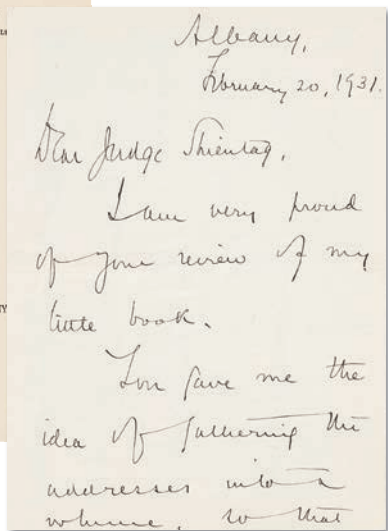 Albany,
February 20, 1931.
Dear Judge Shientag,
I am very proud
of your review of my
little book.
You gave me the
idea of gathering the
addresses into a
volume, so that